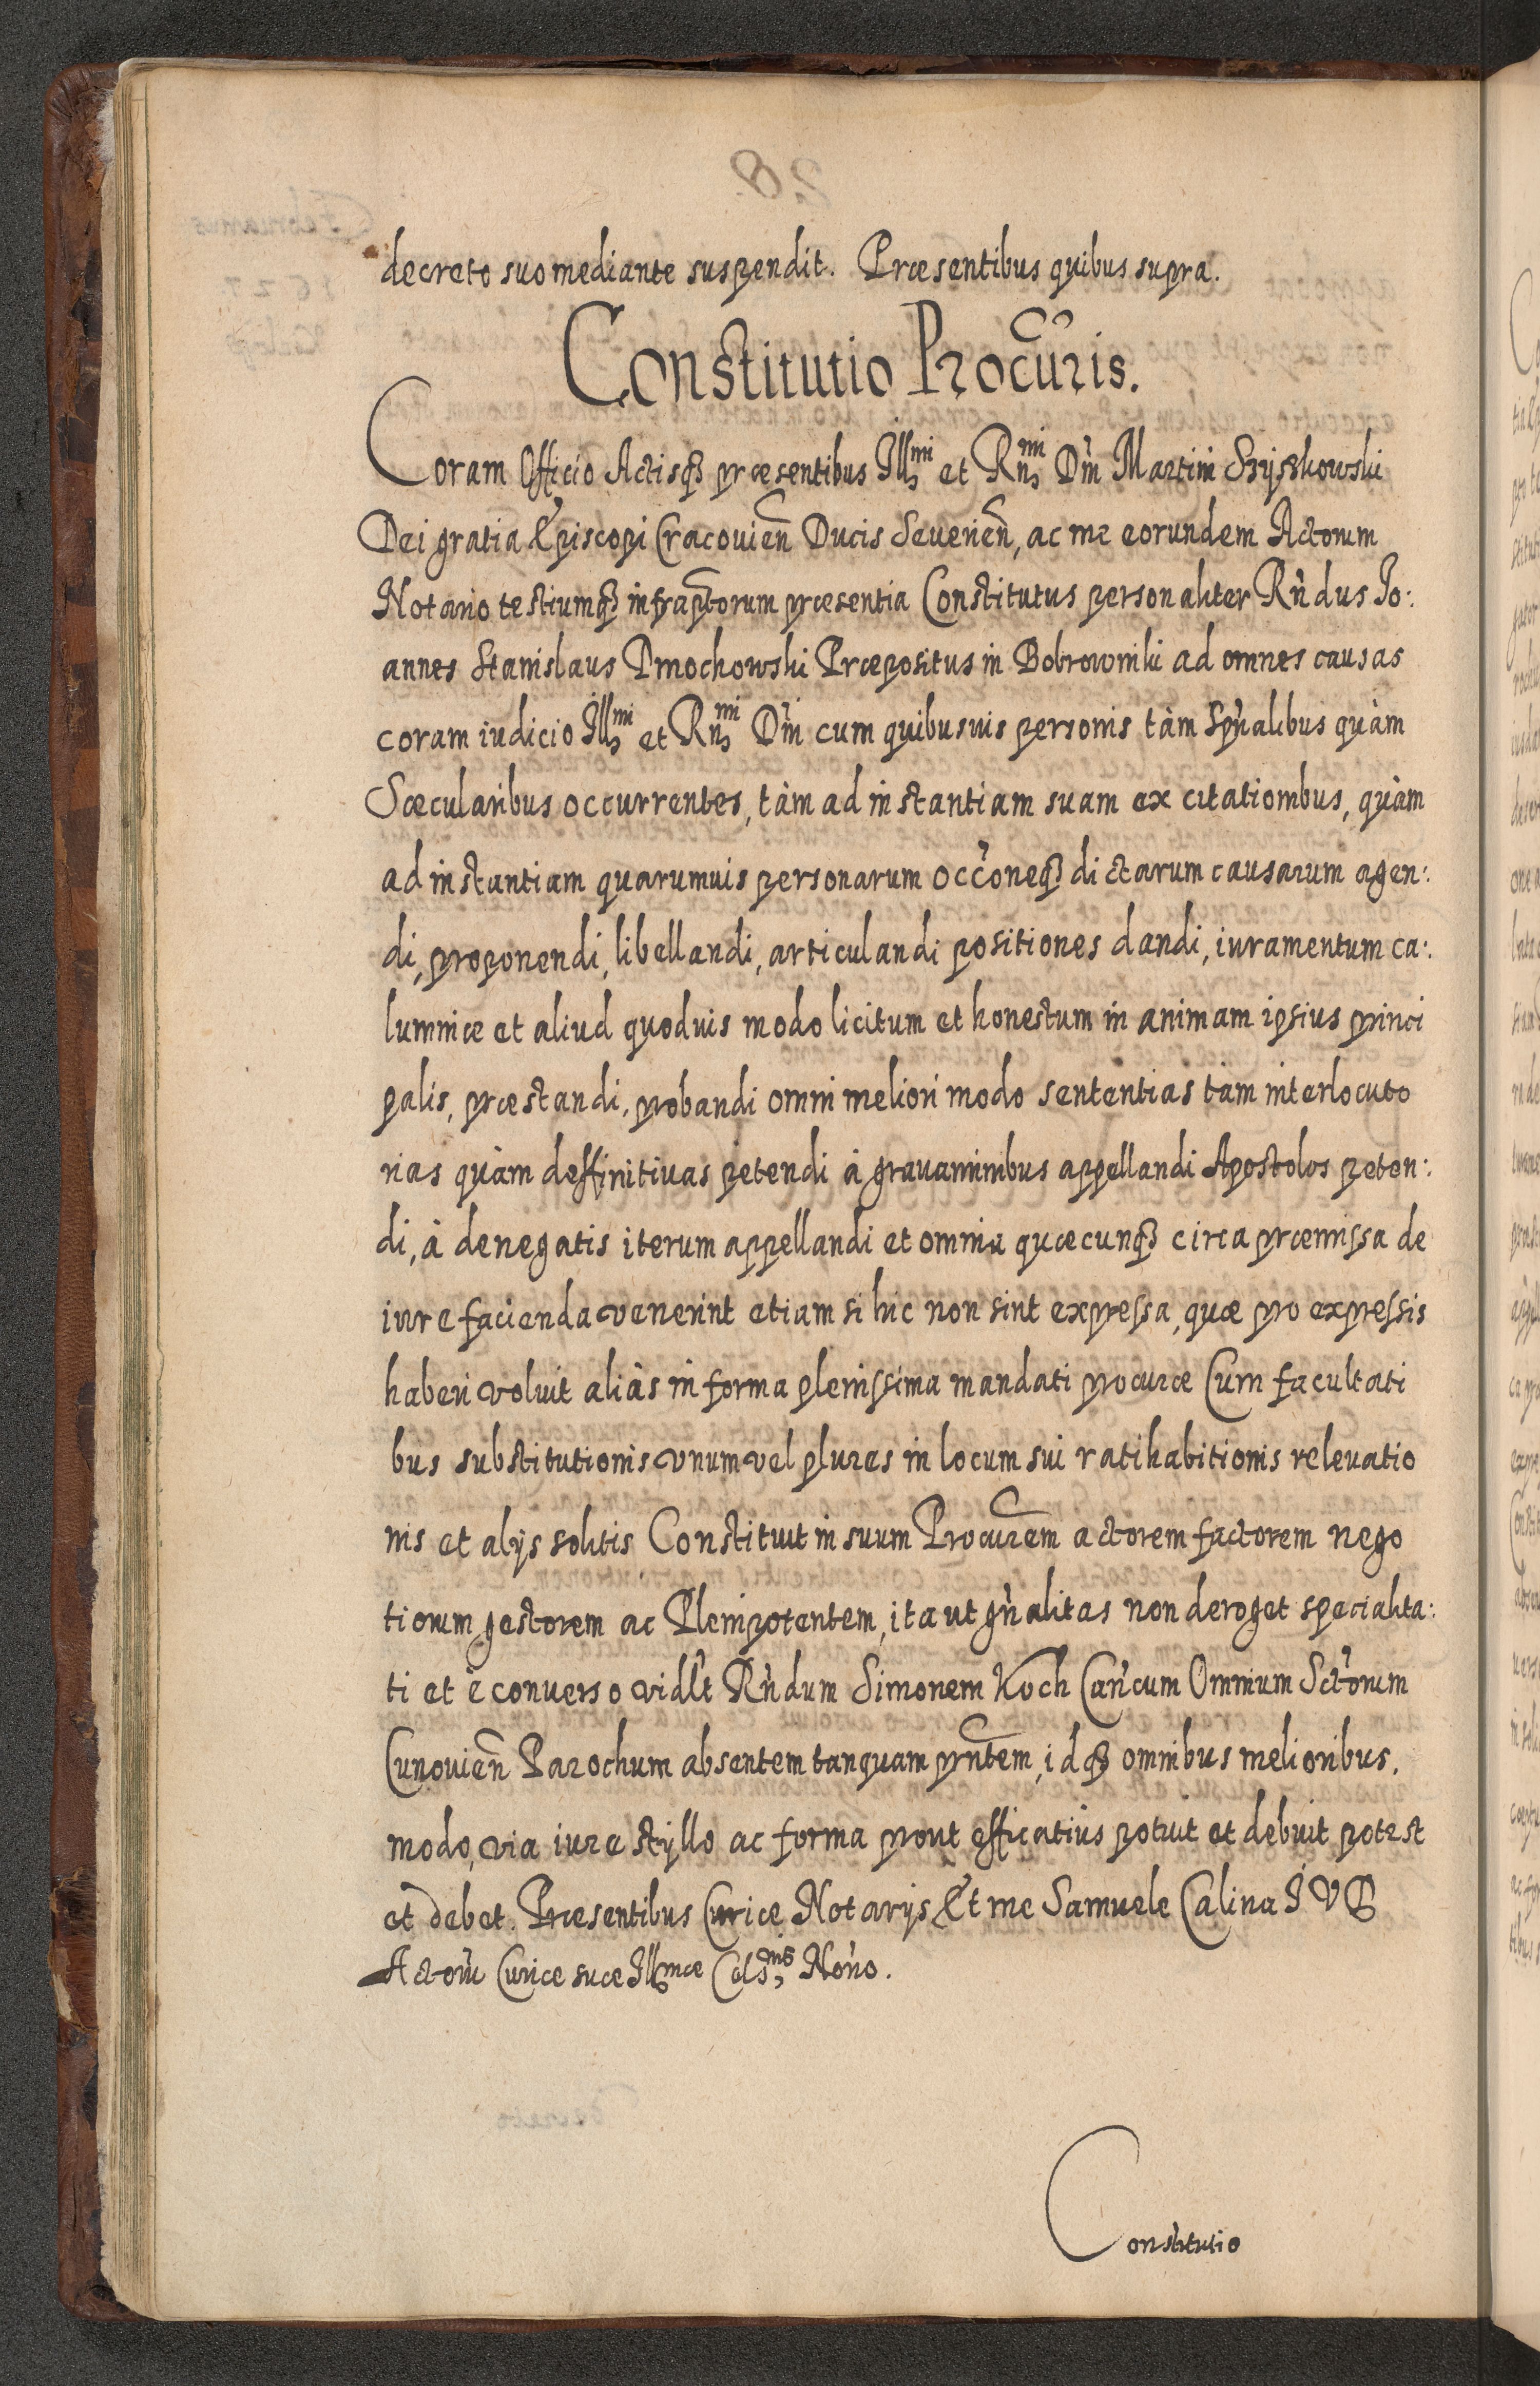 decreto suo mediante suspendit. Præsentibus quibus supra.
Constitutio Procuris.
Coram Officio Actisq₃ præsentibus Illmi et Rnmi Dni Martini Szyszkowski
Dei gratia Episcopi Cracovien Ducis Severien, ac me eorundem Actorum
Notario testiumq₃ infraptorum præsentia Constitutus personaliter Rndus Jo:
annes Stanislaus Dmochowski Præpositus in Bobrowniki ad omnes causas
coram iudicio Illmi et Rnmi Dni cum quibusuis personis tàm Spnalibus quàm
Sæcularibus occurrentes, tàm ad instantiam suam ex citationibus, quàm
ad instantiam quarumuis personarum occoneq₃ dictarum causarum agen:
di, proponendi, libellandi, articulandi positiones dandi, iuramentum ca:
lumniæ et aliud quoduis modo licitum et honestum in animam ipsius princi
palis, præstandi, probandi omni meliori modo sententias tàm interlocuto
rias quàm deffinitiuas petendi à grauaminibus appellandi Apostolos peten:
di, à denegatis iterum appellandi et omnia quæcunq₃ circa præmissa de
iure facienda venerint etiam si hic non sint expressa, quæ pro expressis
haberi voluit aliàs in forma plenissima mandati procuræ Cum facultati
bus substitutionis vnum vel plures in locum sui ratihabitionis releuatio
nis et alijs solitis Constituit in suum Procurem actorem factorem nego
tiorum gestorem ac Plenipotentem, ita ut gnalitas non deroget specialita:
ti et è conuerso vidlt Rndum Simonem Koch Cancum Omnium Sctorum
Cunouien Parochum absentem tanquam pntem, idq₃ omnibus melioribus.
modo, via iure styllo ac forma prout efficatius potuit et debuit potest
et debet. Præsentibus Curiæ Notarijs Et me Samuele Calina I V D
Actorũ Curiæ suæ Illmæ Celsnis Nono.
Constitutio